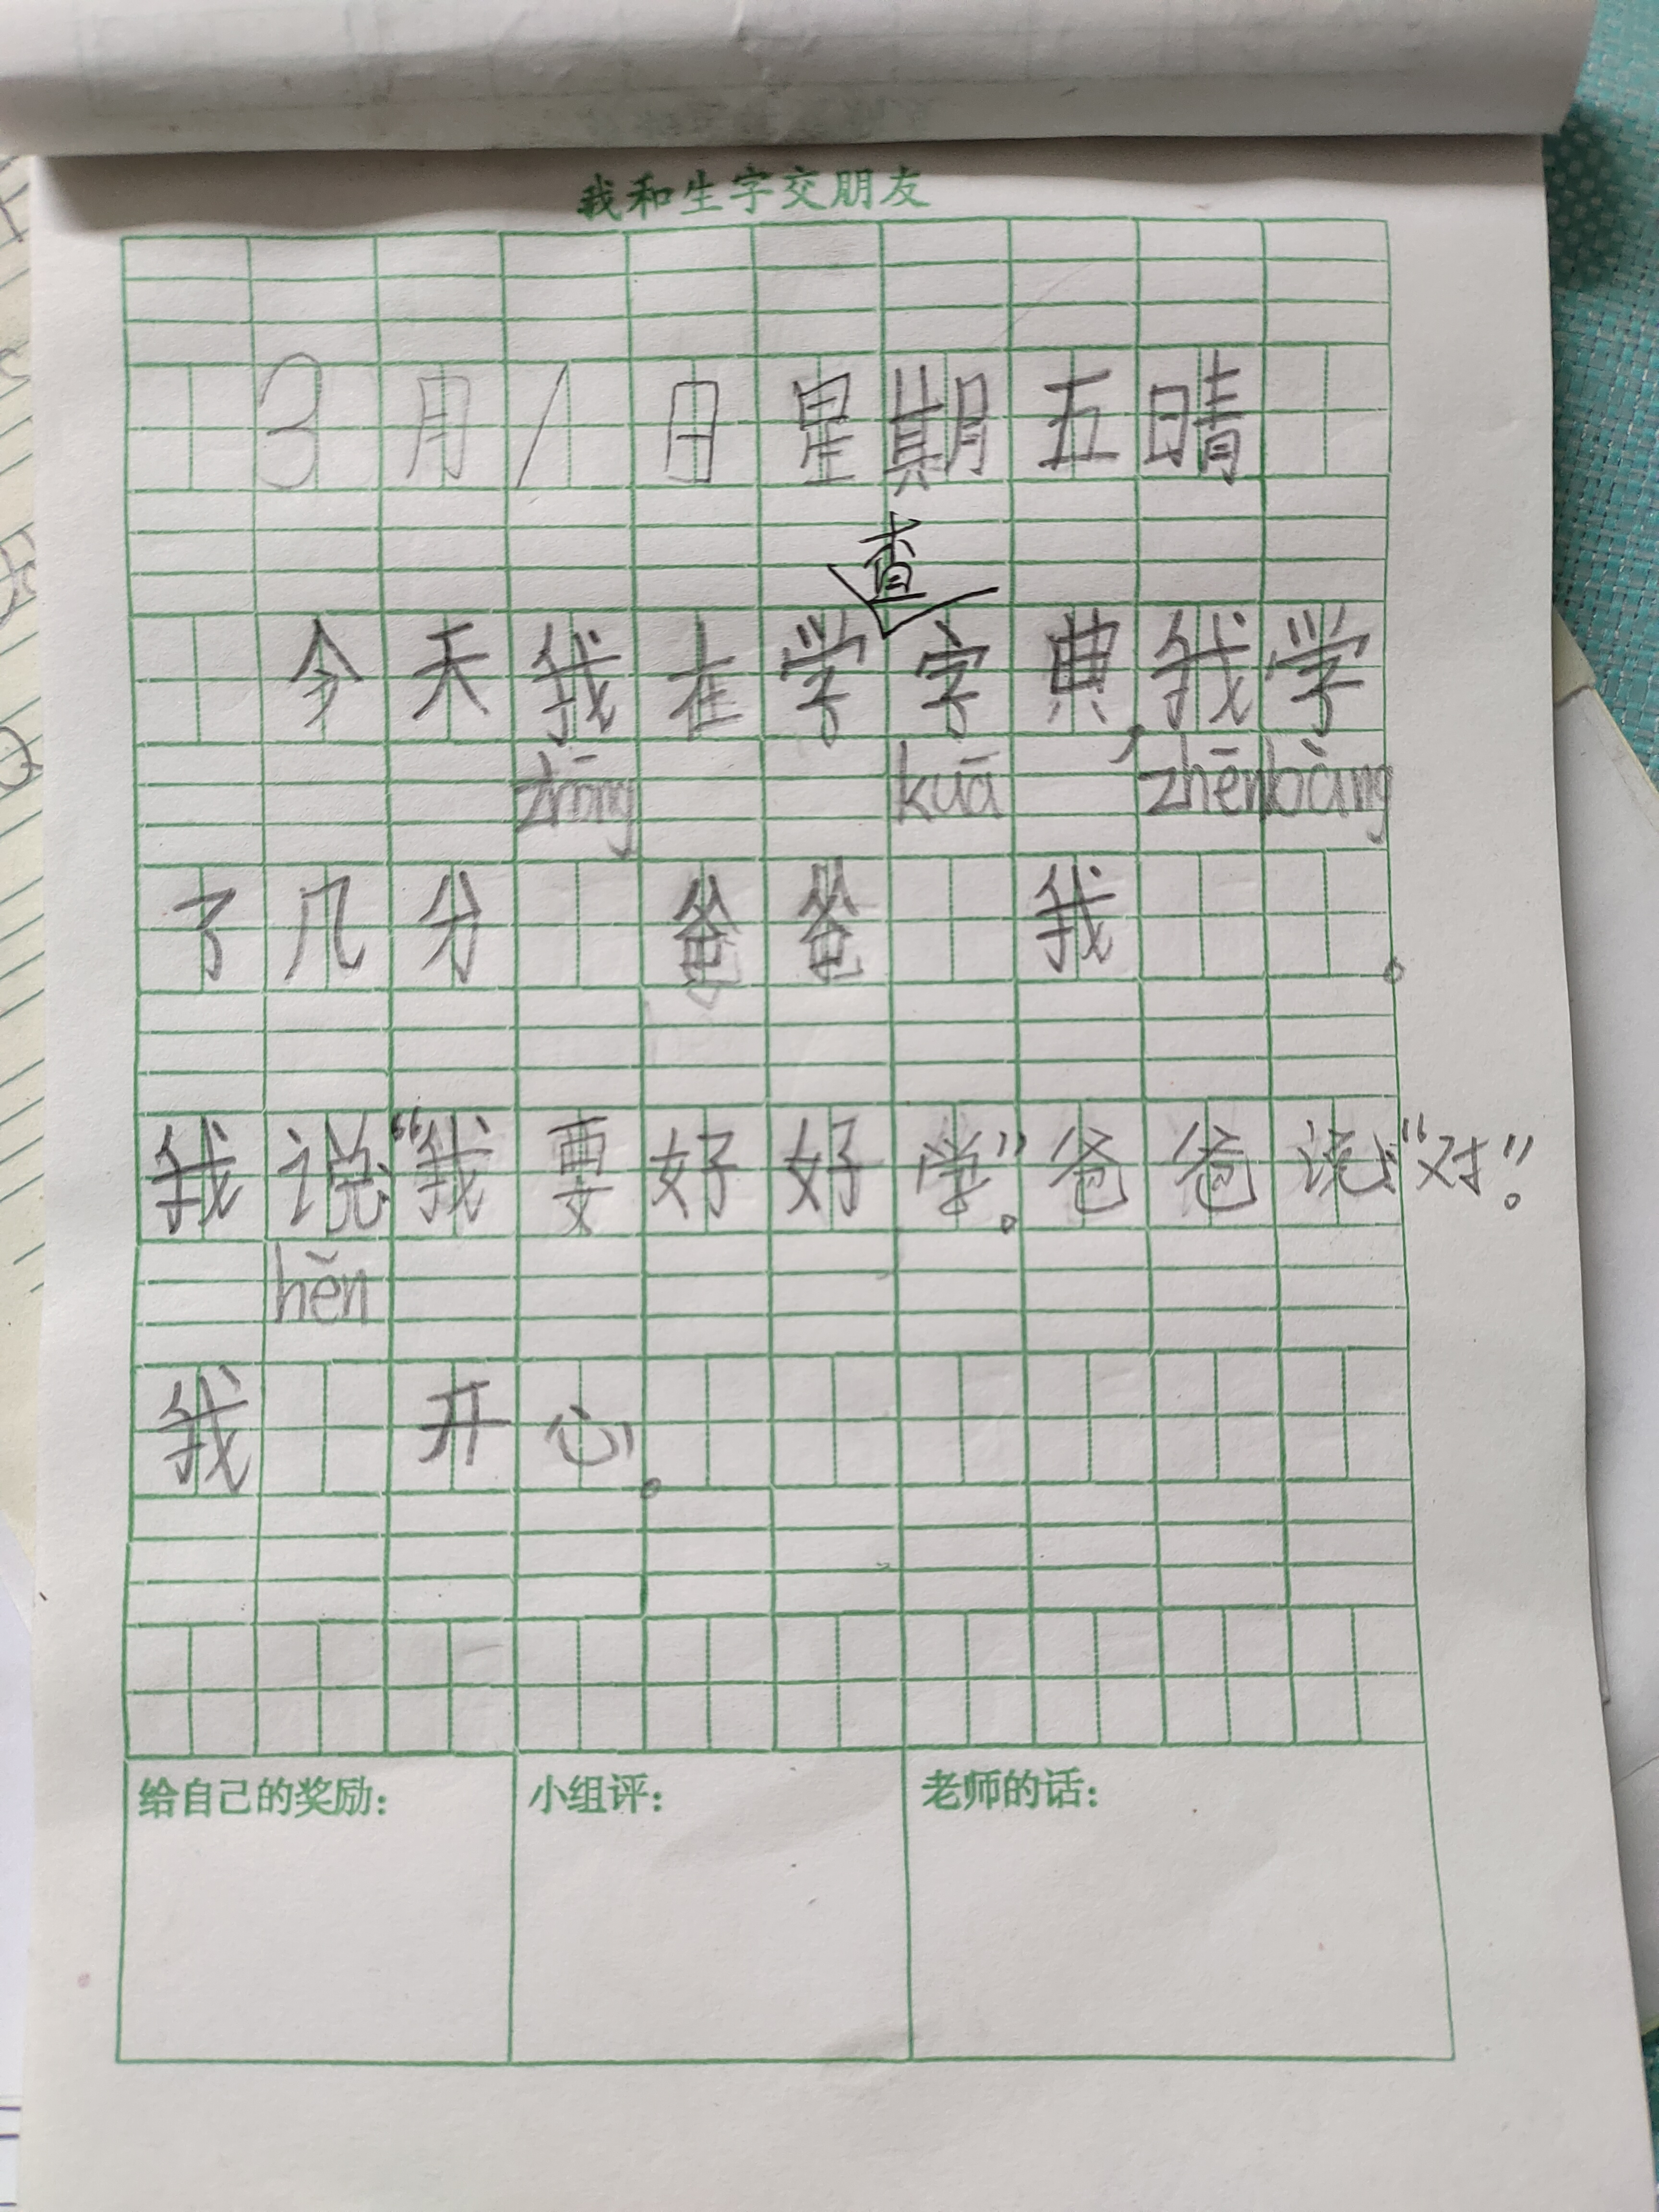 我和生字交朋友
3月1日星期五晴
查
今天我在学字典,我学
zhōng kuā zhēnbàng
了几分 爸爸 我 。
我说:“我要好好学”。爸爸说:“对”。
hěn
我 开心。
给自己的奖励: 小组评: 老师的话: